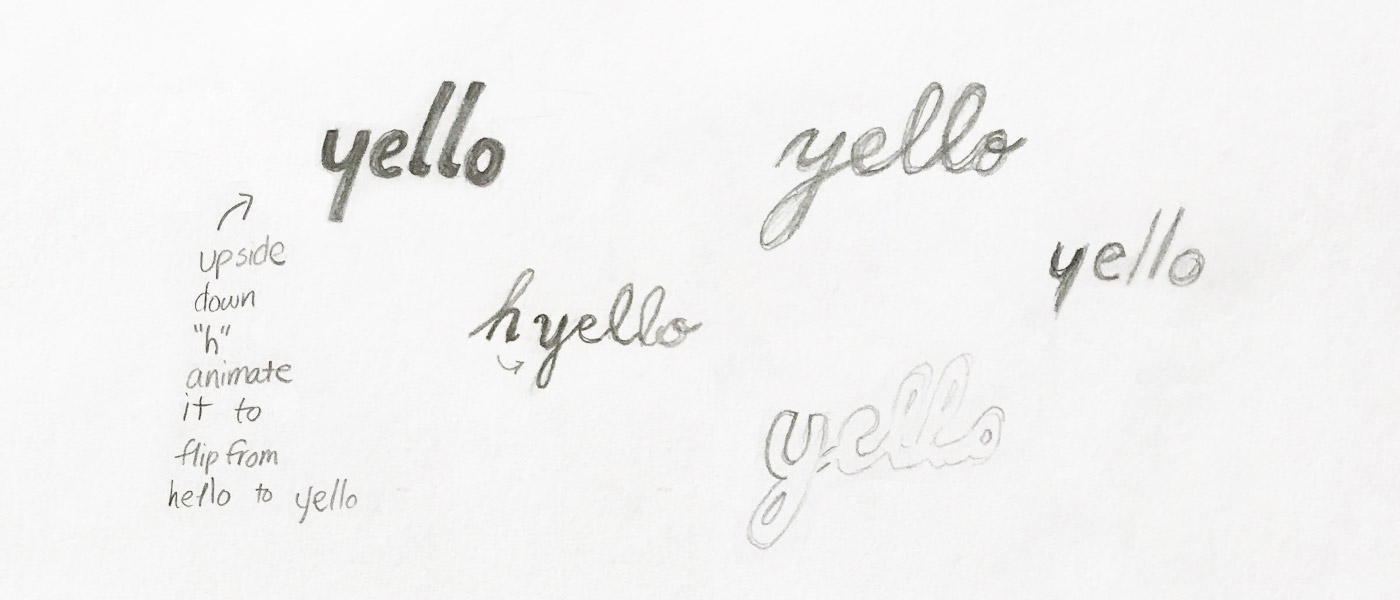 yello
yello
upside
down
"h"
animate
it to
flip from
hello to yello
hyello
yello
yello